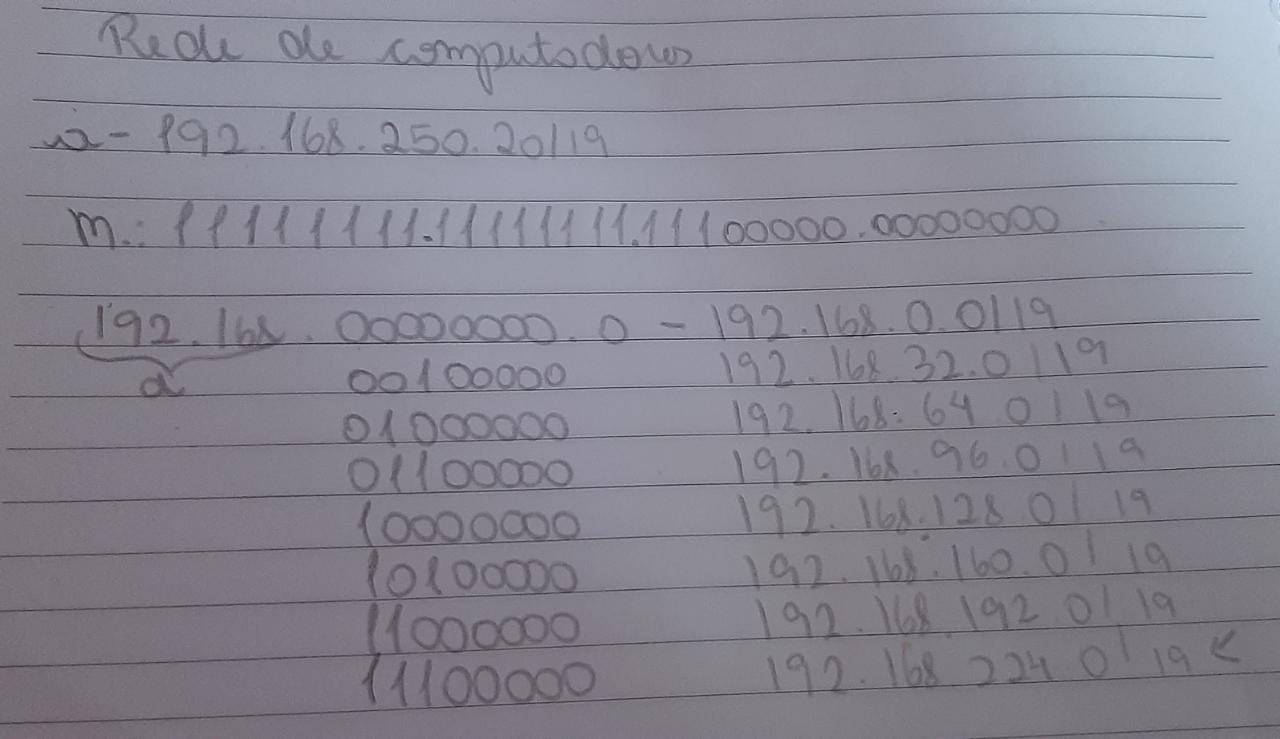 Rede de computadores
a - 192.168.250.20/19
m.: 11111111.11111111.11100000.00000000
192.168.00000000.0 - 192.168.0.0/19
a 00100000 192.168.32.0/19
01000000 192.168.64.0/19
01100000 192.168.96.0/19
10000000 192.168.128.0/19
10100000 192.168.160.0/19
11000000 192.168.192.0/19
11100000 192.168.224.0/19 <